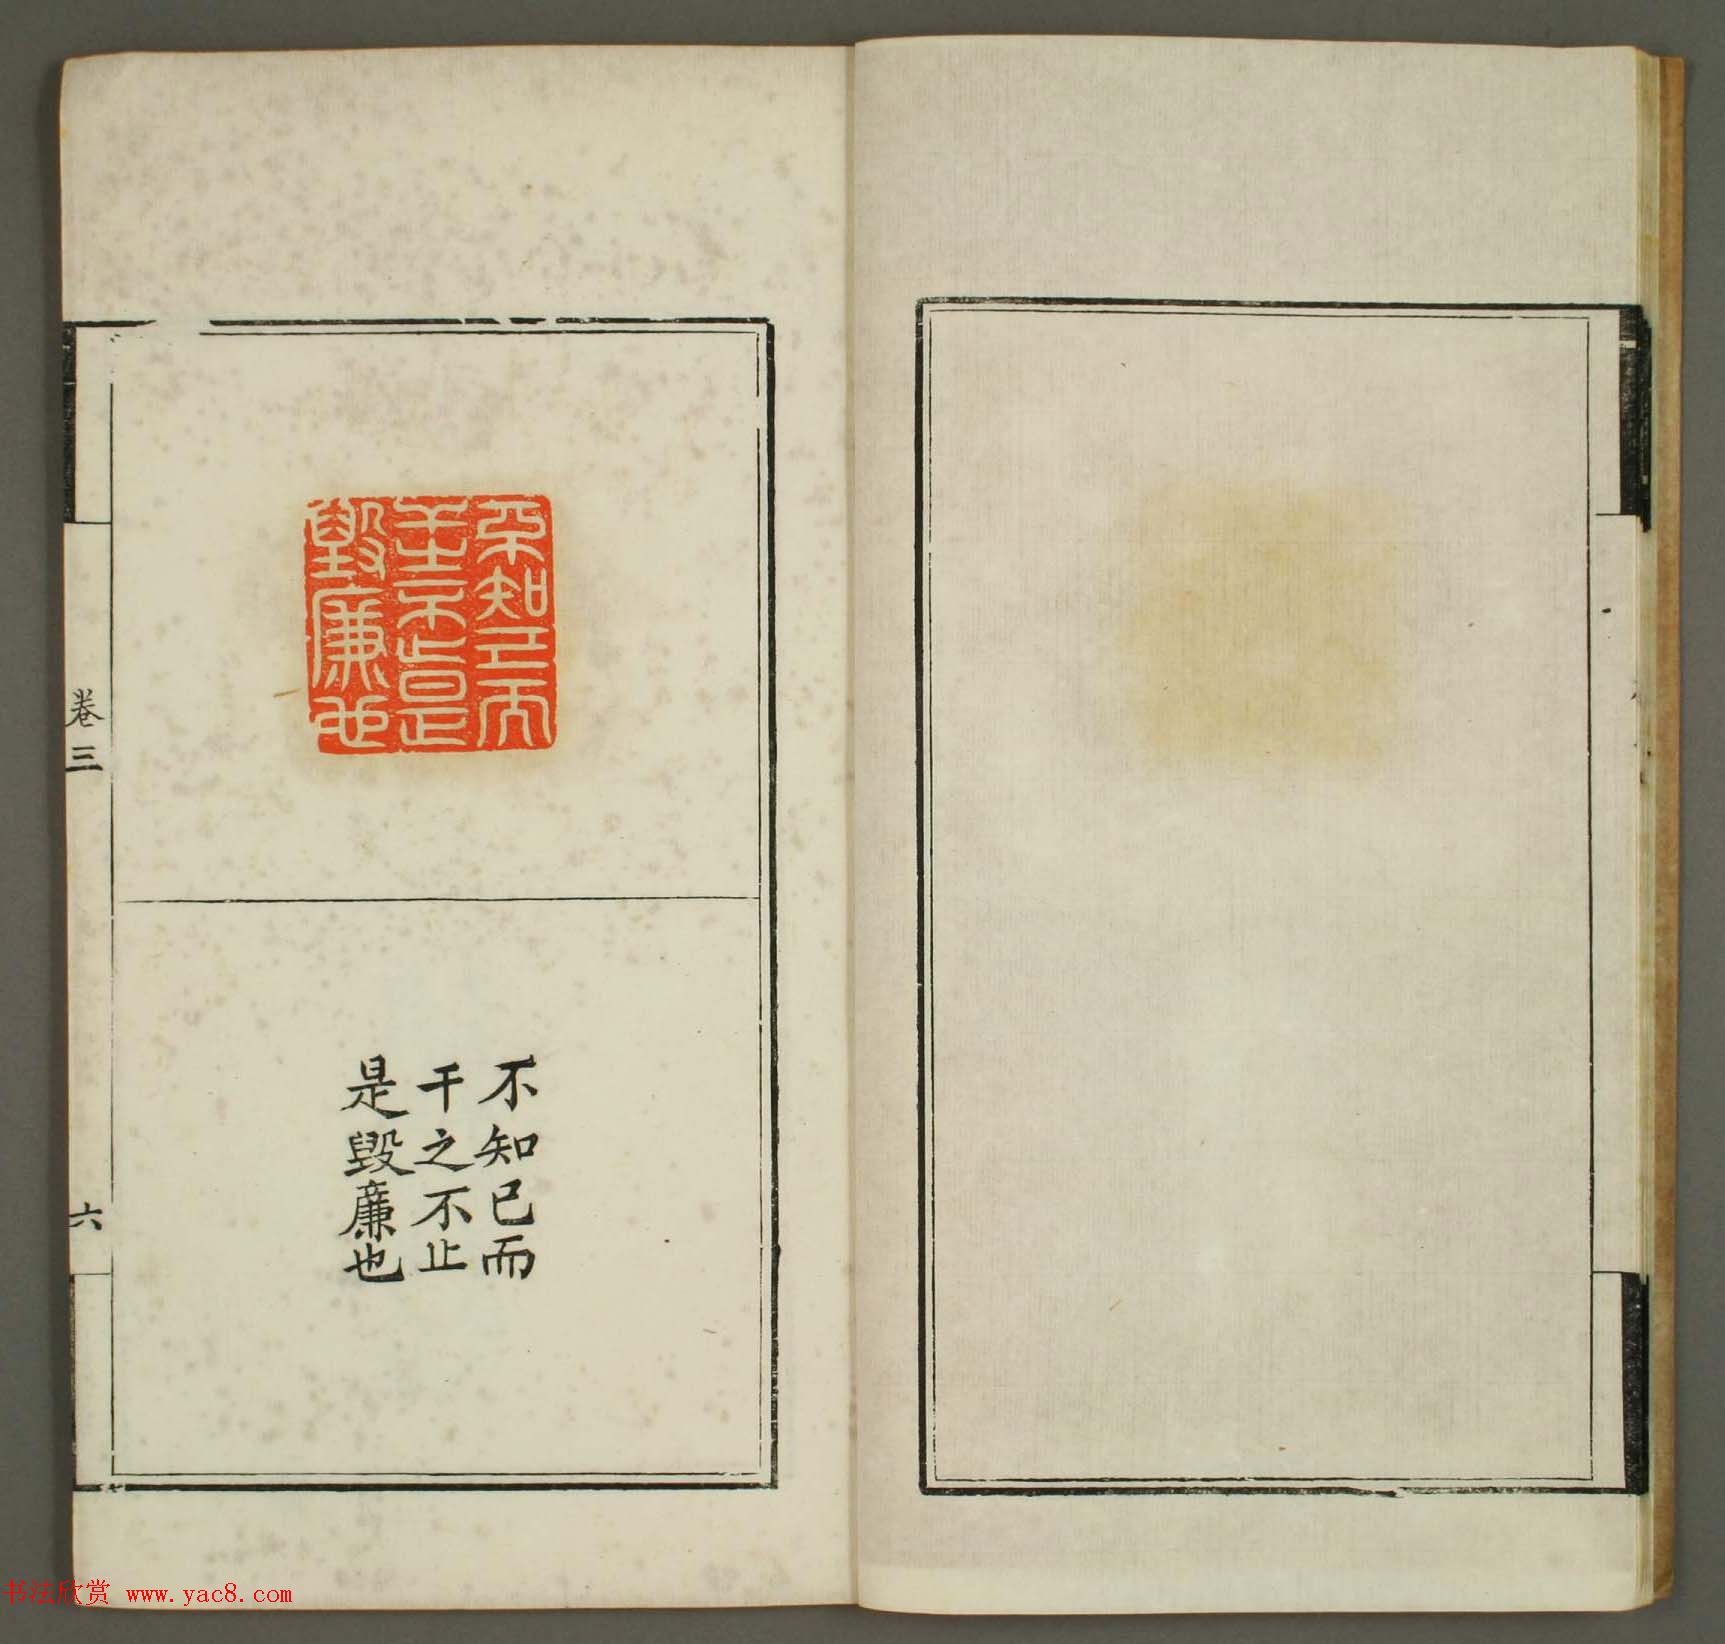 不知己而
干之不止
是毀廉也
不知己而
干之不止
是毀廉也
卷三
六
书法欣赏 www.yac8.com